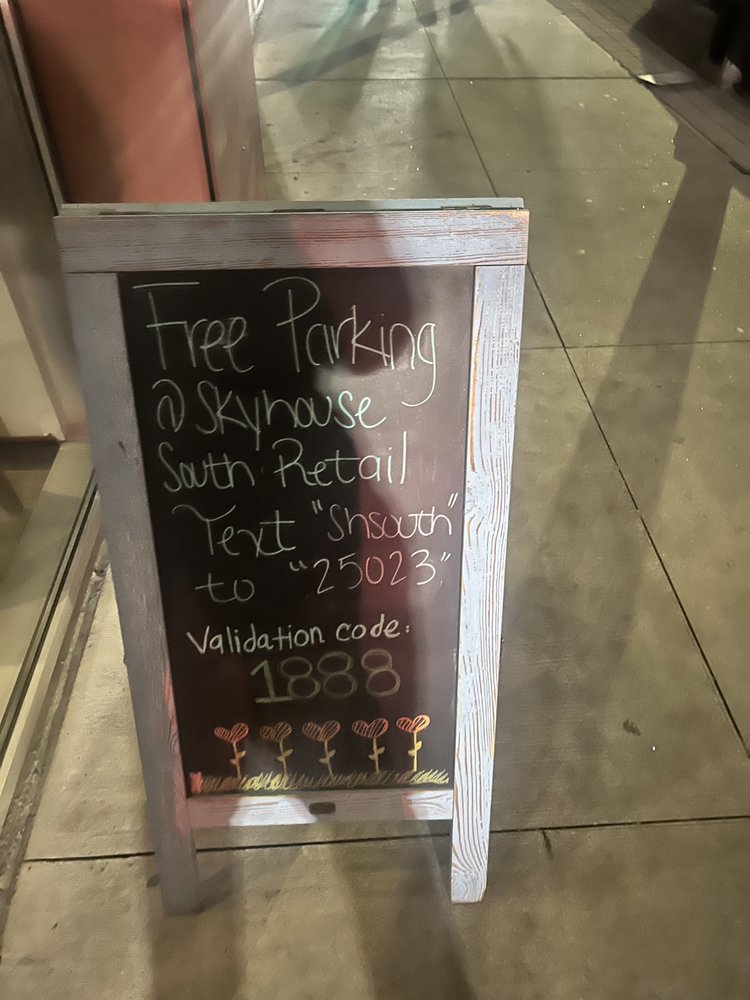 Free Parking
@ Skyhouse
South Retail
Text "Shsouth"
to "25023"
Validation code:
1888